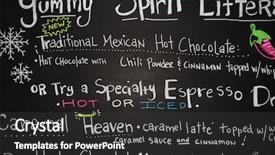 Yummy Spirit Litters
NEW
Traditional Mexican Hot Chocolate:
• Hot Chocolate with Chili Powder & Cinnamon topped w/
OR Try a Specialty Espresso
HOT OR ICED!
Heaven • caramel latte topped w/
caramel sauce and cinnamon!
Crystal
Templates for PowerPoint